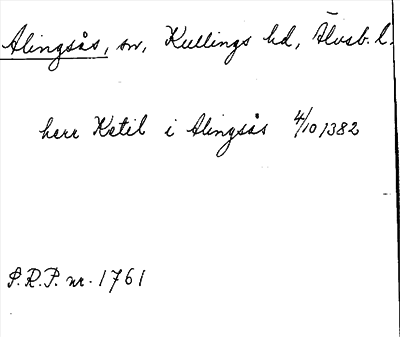 Alingsås, sn, Kullings hd, Älvsb. l.
herr Ketil i Alingsås 4/10 1382
S.R.P. nr. 1761